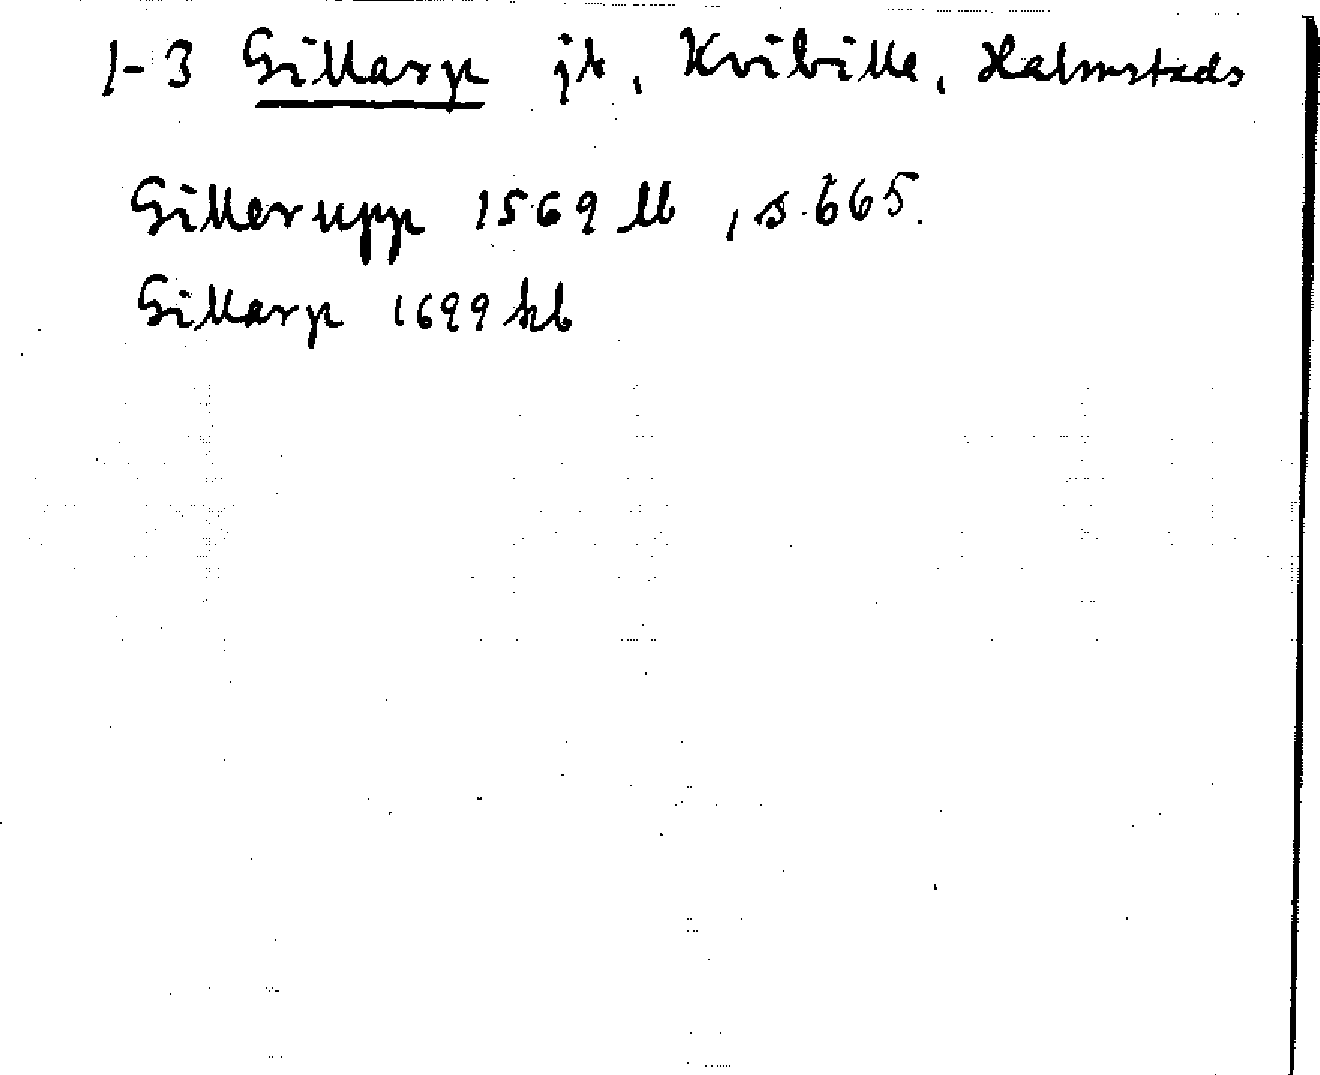 1-3 Gillarp jb, Kvibille, Halmstads
Gillerupp 1569 ll, s. 665.
Gillarp 1699 kb